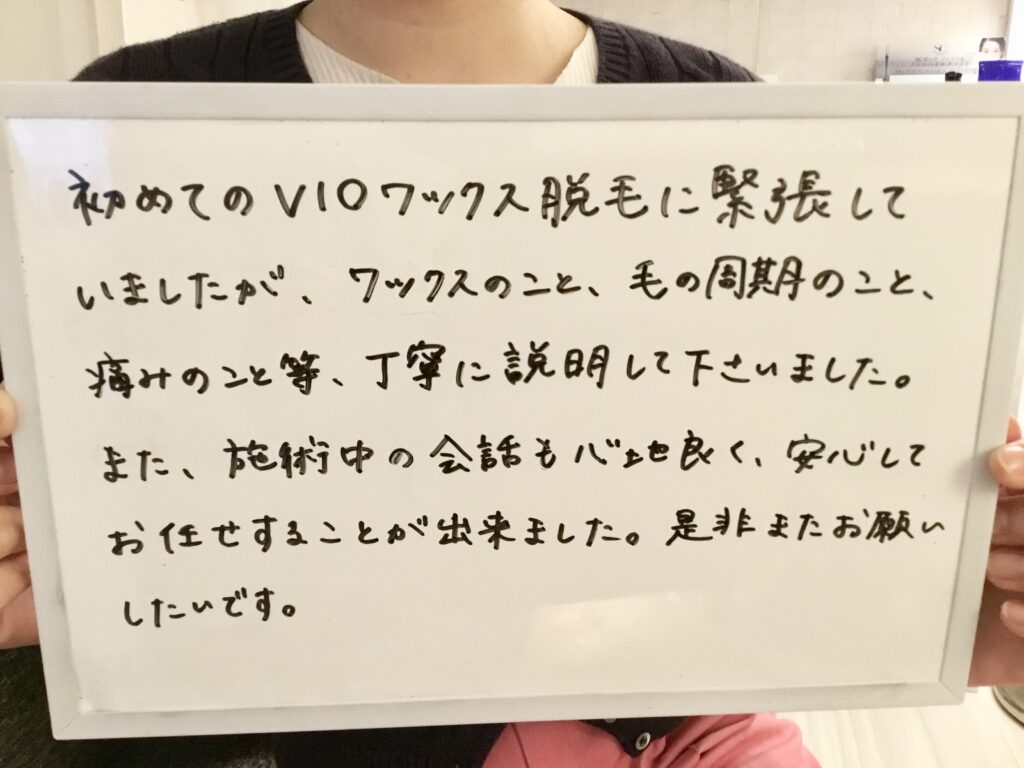 初めてのVIOワックス脱毛に緊張して
いましたが、ワックスのこと、毛の周期のこと、
痛みのこと等、丁寧に説明して下さいました。
また、施術中の会話も心地良く、安心して
お任せすることが出来ました。是非またお願い
したいです。